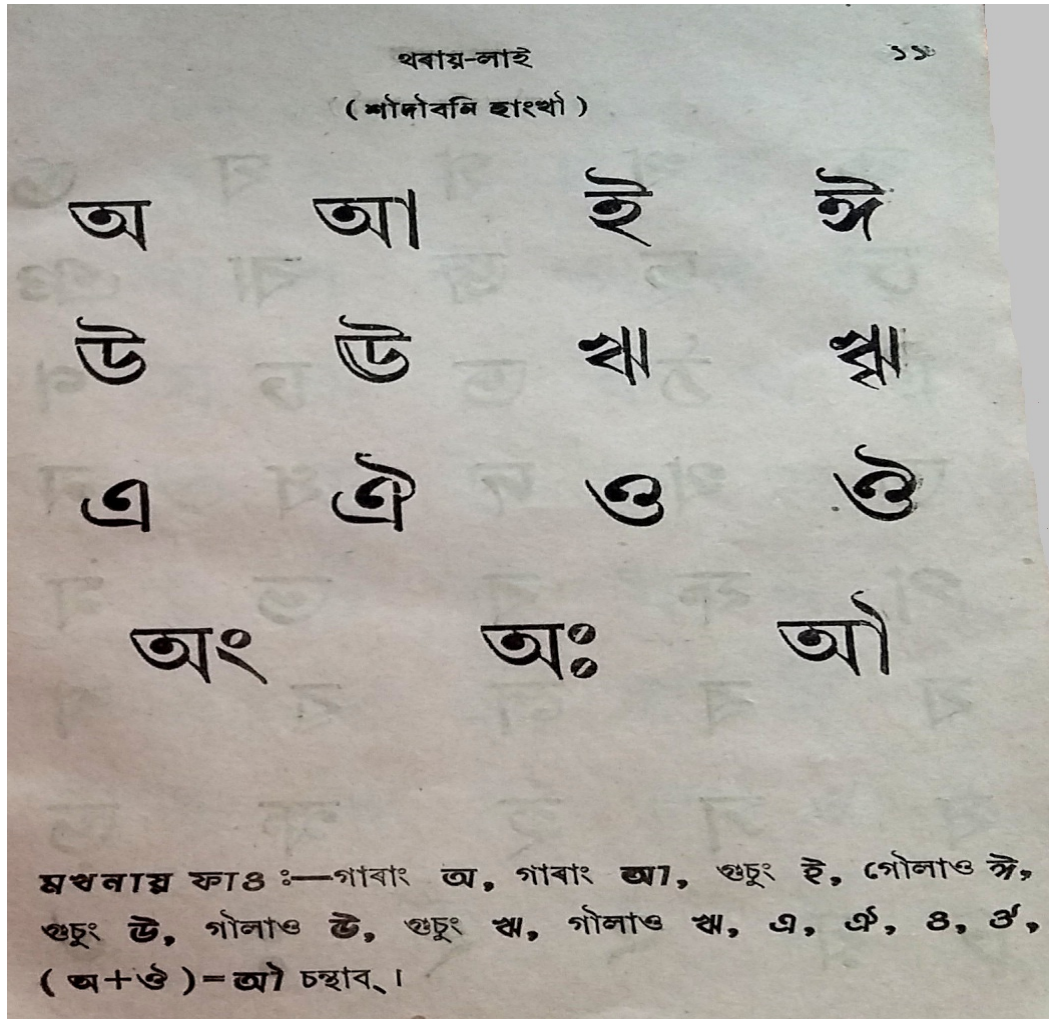 থবায়-লাই ১১
(শৌদৌবনি হাংখৌ)
অ আ ই ঈ
উ ঊ ঋ ৠ
এ ঐ ও ঔ
অং অঃ অৗ
মখনায় ফাও ঃ—গাবাং অ, গাবাং আ, গুচুং ই, গৌলাও ঈ,
গুচুং উ, গৗলাও ঊ, গুচুং ঋ, গৗলাও ৠ, এ, ঐ, ও, ঔ,
(অ+ঔ)=অৗ চন্থাব্।